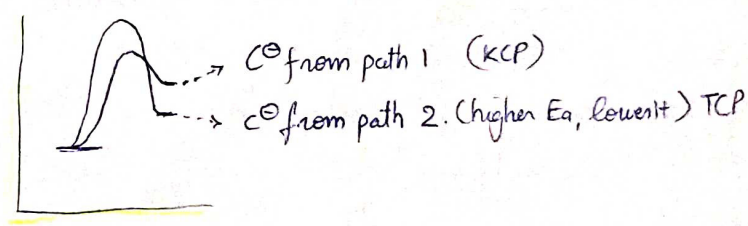 C⊖ from path 1 (KCP)
C⊖ from path 2. (higher Ea, lowerit) TCP